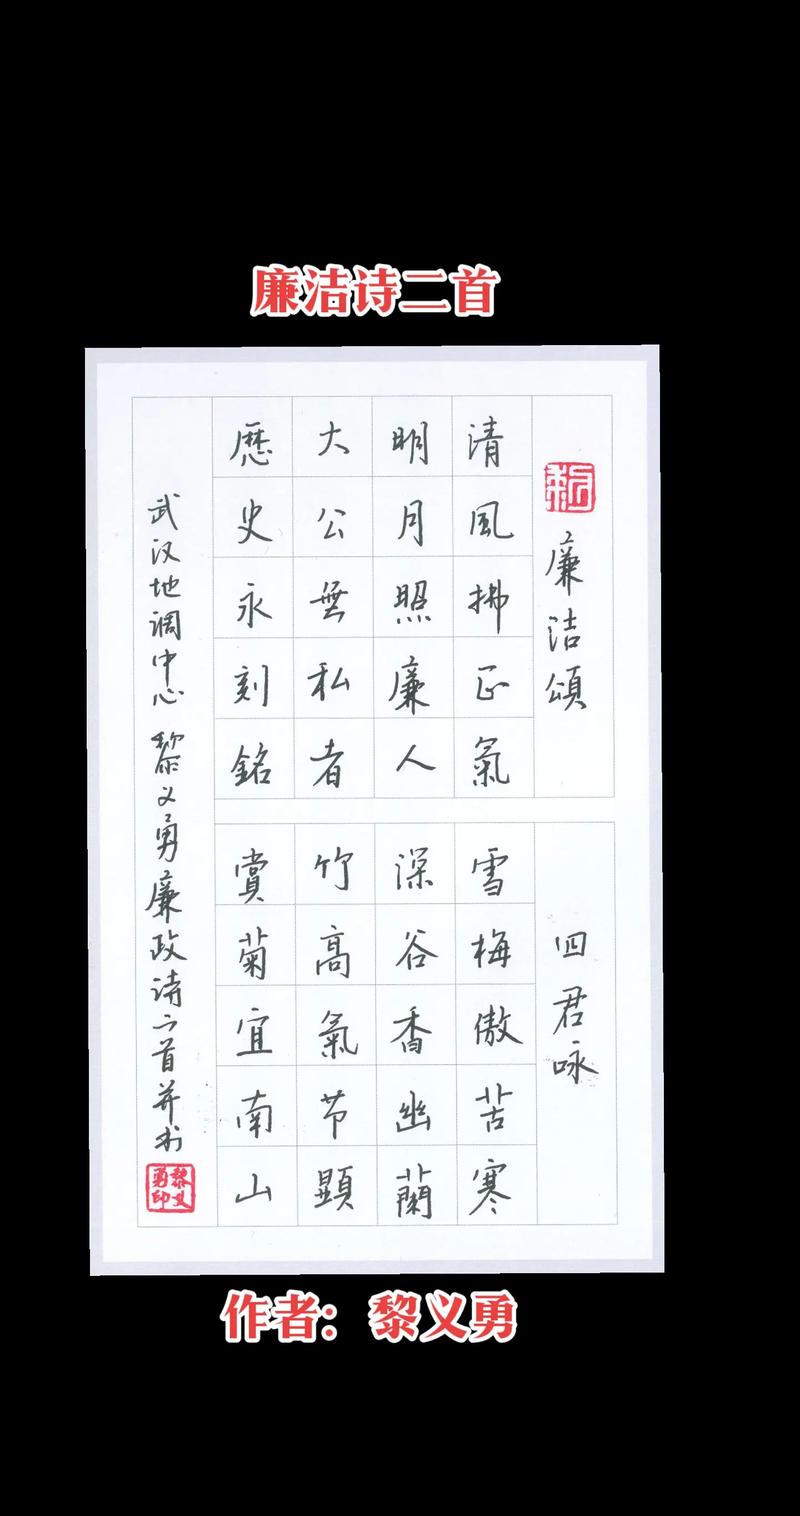 廉洁诗二首
廉洁頌
清風拂正氣
明月照廉人
大公無私者
歷史永刻銘
四君咏
雪梅傲苦寒
深谷香幽蘭
竹高氣节顯
賞菊宜南山
武汉地调中心 黎义勇廉政诗二首并书
黎义勇印
作者：黎义勇